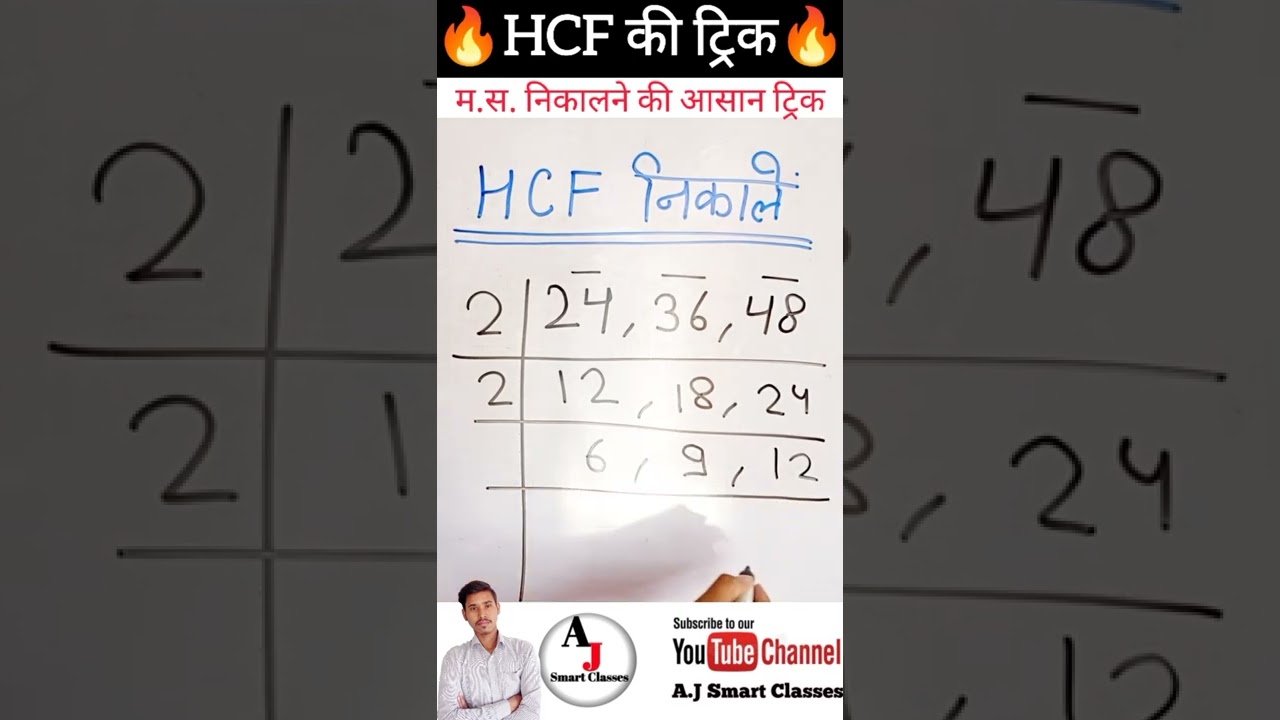 🔥HCF की ट्रिक🔥
म.स. निकालने की आसान ट्रिक
HCF निकालें
2 | 24, 36, 48
2 | 12, 18, 24
6, 9, 12
AJ
Smart Classes
Subscribe to our
YouTube Channel
A.J Smart Classes